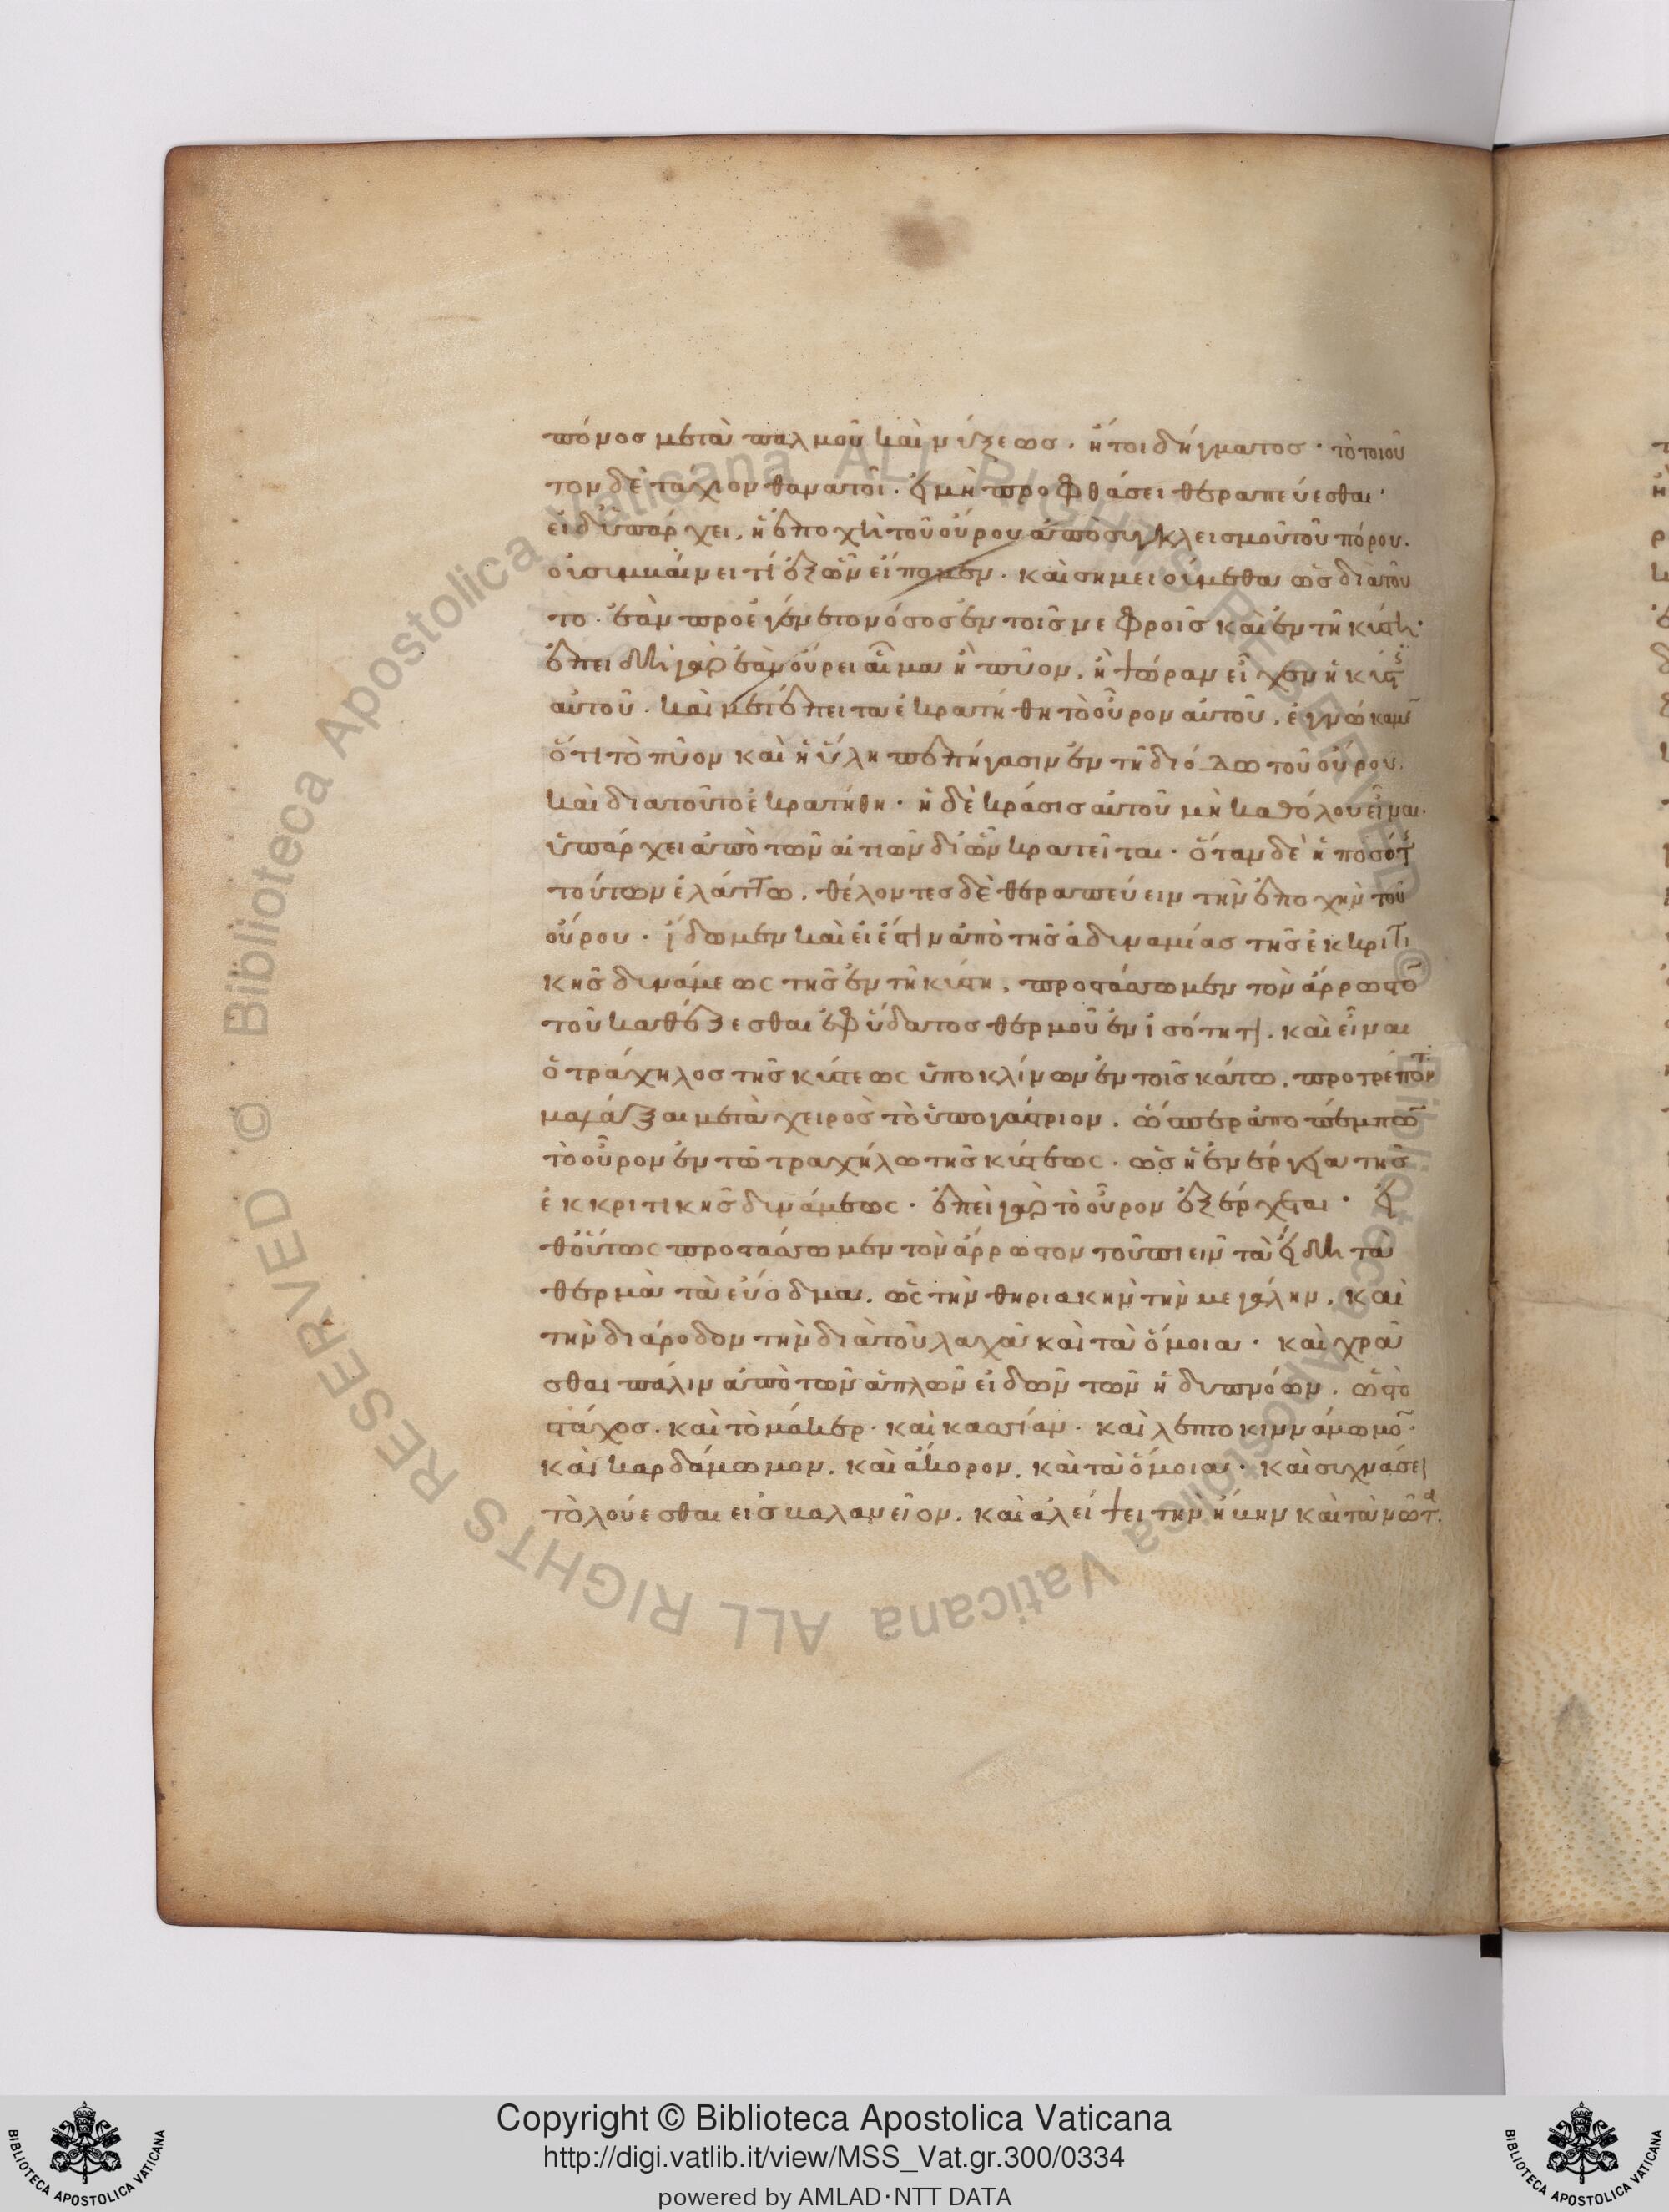 πόνος μετὰ παλμοῦ καὶ νύξεως. ἤτοι δήγματος· τὸ τοιοῦ
τον δὲ τάχιον θανατοῖ. εἰ μὴ προφθάσει θεραπεύεσθαι·
εἰ δ' ὑπάρχει, ἡ ἐποχὴ τοῦ οὔρου ἀπὸ συγκλεισμοῦ τοῦ πόρου.
οὐ συμβαίνει τί ἐξ ὧν εἴπομεν. καὶ σημειούμεθα ὡς διὰ τοῦ
το. ἐὰν προέγένετο νόσος ἐν τοῖς νεφροῖς καὶ ἐν τῆ κύστη·
ἐπειδὴ γὰρ ἐὰν οὔρει αἷμα ἢ πῦον, ἢ ψώραν εἶχεν ἡ κύστις
αὐτοῦ. καὶ μετέπειτα ἐκρατήθη τὸ οὖρον αὐτοῦ, ἐγνώκαμεν
ὅτι τὸ πῦον καὶ ἡ ὕλη πεπήγασιν ἐν τῆ διόδω τοῦ οὔρου.
καὶ διατοῦτο ἐκρατήθη· ἡ δὲ κράσις αὐτοῦ μὴ καθόλου εἶναι.
ὑπάρχει ἀπὸ τῶν αἰτιῶν δι' ὧν κρατεῖται. ὅταν δὲ ἡ ποσότης
τούτων ἐλάττω. θέλοντες δὲ θεραπεύειν τὴν ἐποχὴν τοῦ
οὔρου. ἴδωμεν καὶ εἰ ἔστιν ἀπὸ τῆς ἀδυναμίας τῆς ἐκκριτι
κῆς δυνάμεως τῆς ἐν τῆ κύστη, προστάσσωμεν τὸν ἄρρωστον
τοῦ καθέζεσθαι ἐφ' ὕδατος θερμοῦ ἐν ἰσότητι. καὶ εἶναι
ὁ τράχηλος τῆς κύστεως ὑποκλίνων ἐν τοῖς κάτω, προτρέποντ.
μαλάξαι μετὰ χειρὸς τὸ ὑπογάστριον. ὥσπερ ἀποπέμπων
τὸ οὖρον ἐν τῶ τραχήλω τῆς κύστεως. ὡς ἡ ἐνέργεια τῆς
ἐκκριτικῆς δυνάμεως. ἐπεὶ γὰρ τὸ οὖρον ἐξέρχεται· εἶ
θ' οὕτως προστάσσωμεν τὸν ἄρρωστον τοῦ πιεῖν τὰ εἴδη τὰ
θερμὰ τὰ εὔοδμα. ὡς τὴν θηριακὴν τὴν μεγάλην, καὶ
τὴν διάροδον τὴν διὰ τοῦ λαχᾶ καὶ τὰ ὅμοια· καὶ χρᾶ
σθαι πάλιν ἀπὸ τῶν ἁπλῶν εἰδῶν τῶν ἡδυπνόων. ὡς τὸ
στάχος. καὶ τὸ μάκερ. καὶ κασσίαν. καὶ λεπτοκιννάμωμον.
καὶ καρδάμωμον. καὶ ἄκορον, καὶ τὰ ὅμοια· καὶ συχνάσει
τὸ λούεσθαι εἰς βαλανεῖον. καὶ ἀλείψει τὴν ἥβην καὶ τὰ νῶτα.
Copyright © Biblioteca Apostolica Vaticana
http://digi.vatlib.it/view/MSS_Vat.gr.300/0334
powered by AMLAD·NTT DATA